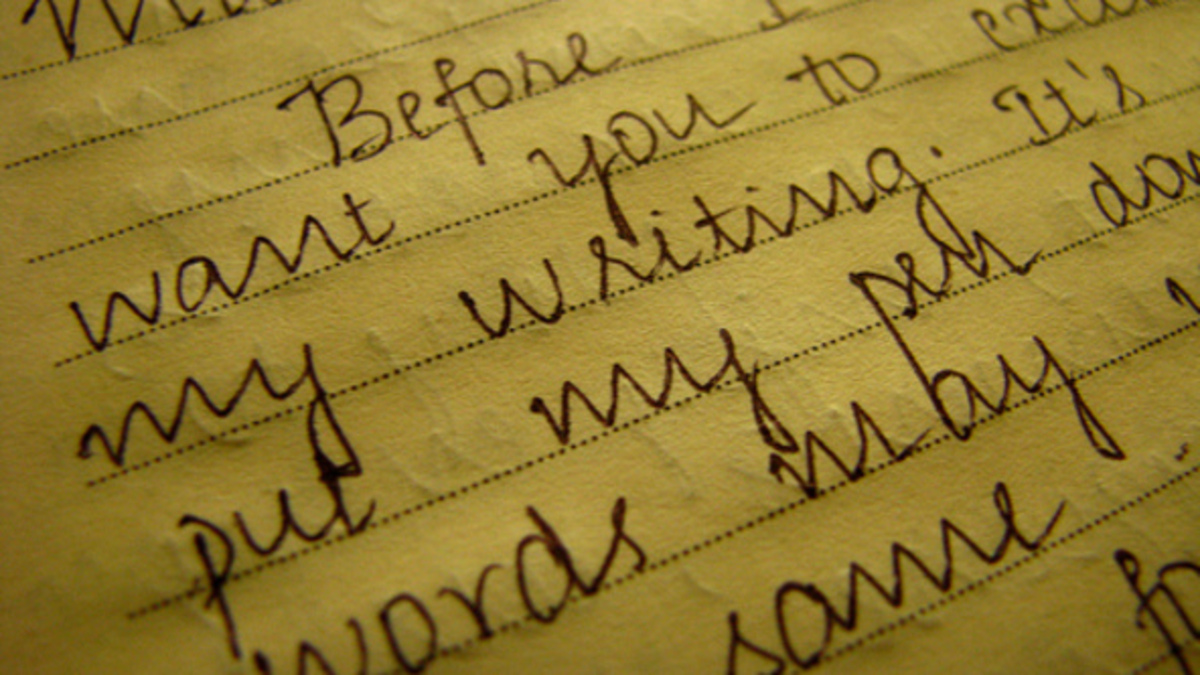 Before I
want you to
my writing. It's
put my pen
words may
same